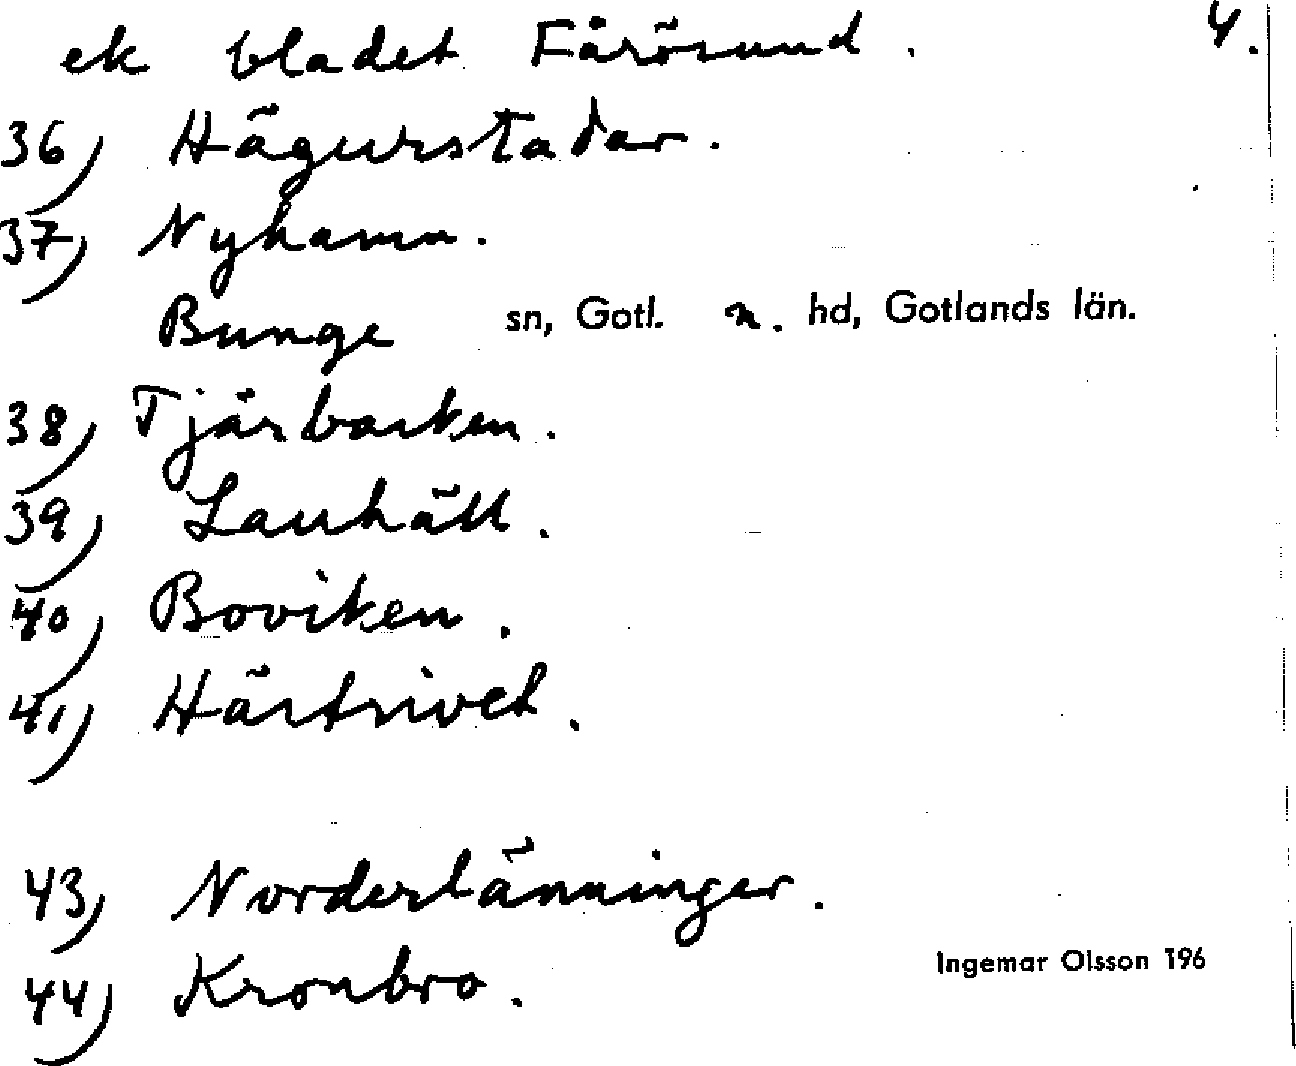 ek bladet Fårösund. 4.
36) Hägurstadar.
37) Nyhamn.
Bunge sn, Gotl. n. hd, Gotlands län.
38) Tjärbacken.
39) Lauhäll.
40) Boviken.
41)
43) Norderlänninger.
44) Kronbro.
Ingemar Olsson 196